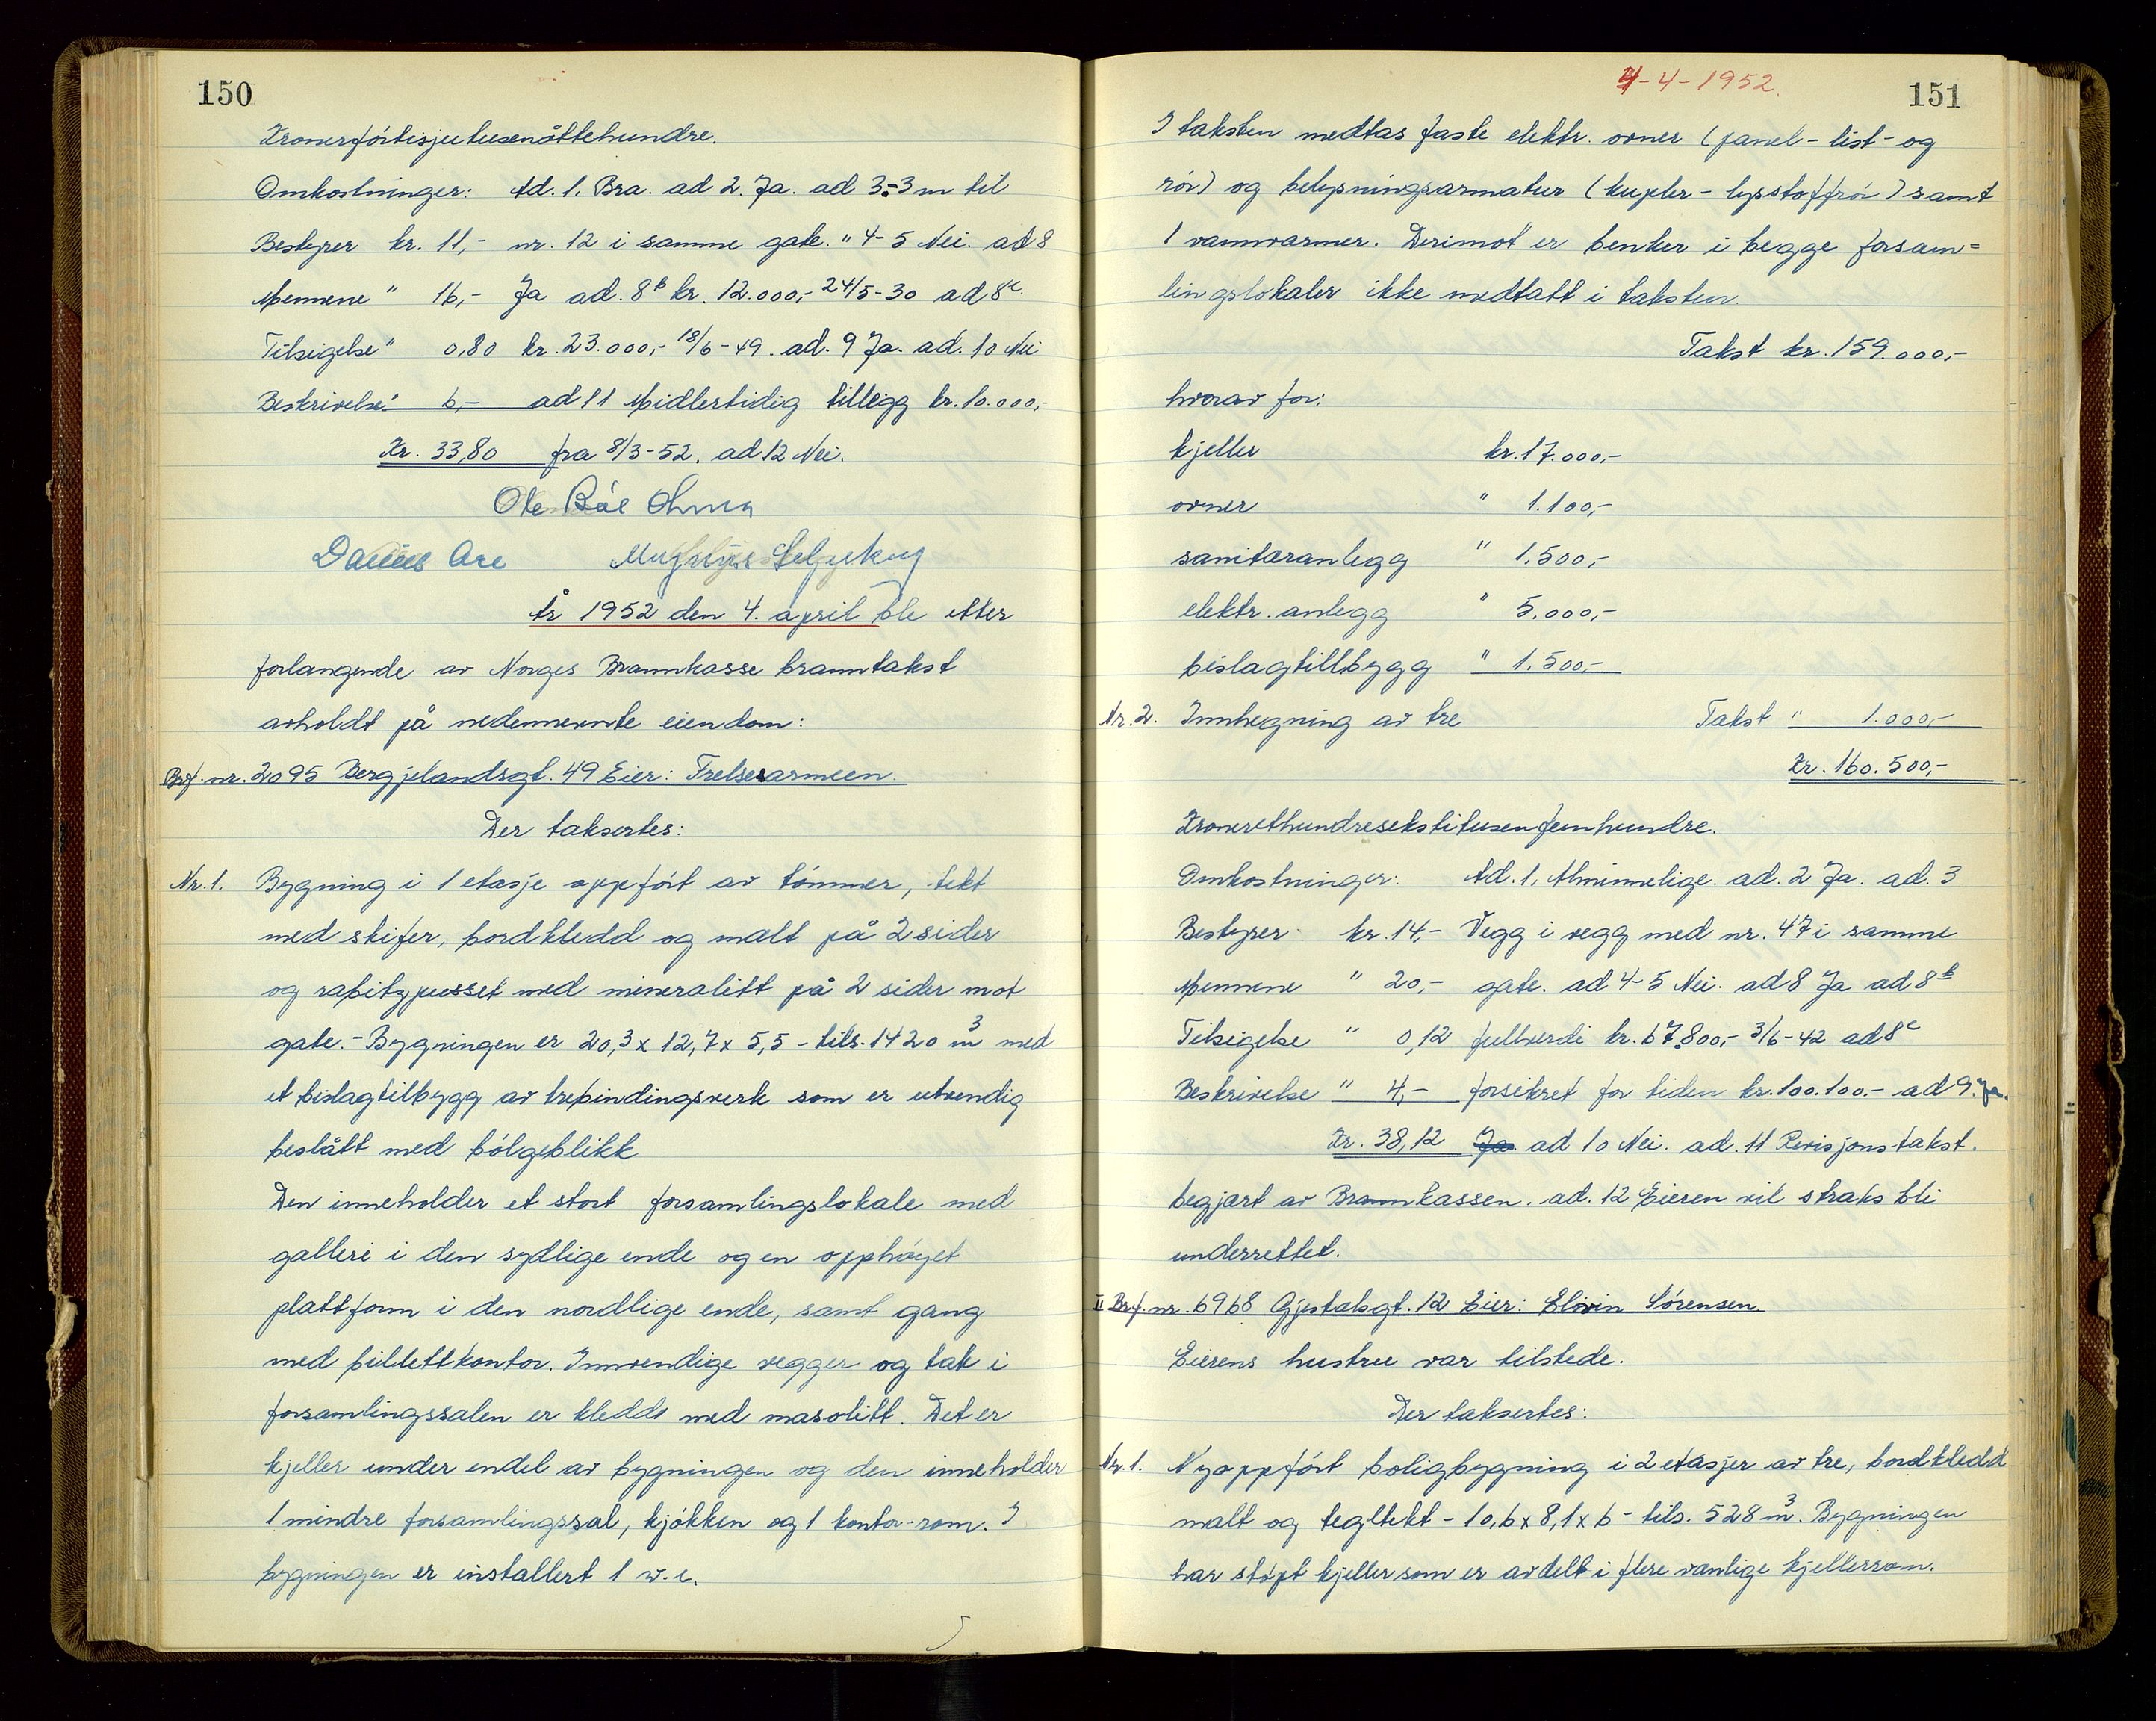 150
Kronerførtisjutusenåttehundre.
Omkostninger: Ad. 1. Bra. ad 2. Ja. ad 3 = 3 m til
Bestyrer kr. 11,- nr. 12 i samme gate. " 4-5 Nei. ad 8
Mennene " 16,- Ja ad. 8b kr. 12.000,- 24/5-30 ad 8c.
Tilsigelse " 0,80 kr. 23.000,- 18/6-49. ad. 9 Ja. ad. 10 Nei
Beskrivelse " 6,- ad 11 Midlertidig tillegg kr. 10.000,-
Kr. 33,80 fra 8/3-52. ad 12 Nei.
Ole Bål
År 1952 den 4. april ble etter
forlangende av Norges Brannkasse branntakst
avholdt på nedennevnte eiendom:
Brf. nr. 2095 Bergjelandsgt. 49 Eier: Frelsesarmeen.
Der taksertes:
Nr. 1. Bygning i 1 etasje oppført av tømmer, tekt
med skifer, bordkledd og malt på 2 sider
og rabitzpusset med mineralitt på 2 sider mot
gate. - Bygningen er 20,3 x 12,7 x 5,5 - tils. 1420 m3 med
et bislagtilbygg av trebindingsverk som er utvendig
beslått med bølgeblikk
Den inneholder et stort forsamlingslokale med
galleri i den sydlige ende og en opphøyet
plattform i den nordlige ende, samt gang
med billettkontor. Innvendige vegger og tak i
forsamlingssalen er kledds med masolitt. Det er
kjeller under endel av bygningen og den inneholder
1 mindre forsamlingssal, kjøkken og 1 kontor-rom. I
bygningen er installert 1 w.c.
4-4-1952.
151
I taksten medtas faste elektr. ovner (panel- list- og
rør) og belysningsarmatur (kupler - lysstoffrør) samt
1 vannvarmer. Derimot er benker i begge forsam=
lingslokaler ikke medtatt i taksten.
Takst kr. 159.000,-
hvorav for:
kjeller kr. 17.000,-
ovner " 1.100,-
sanitæranlegg " 1.500,-
elektr. anlegg " 5.000,-
bislagtillbygg " 1.500,-
Nr. 2. Innhegning av tre Takst " 1.000,-
Kr. 160.500,-
Kronerethundresekstitusenfemhundre.
Omkostninger: Ad. 1, Alminnelige. ad. 2 Ja. ad. 3
Bestyrer kr. 14,- Vegg i vegg med nr. 47 i samme
Mennene " 20,- gate. ad 4-5 Nei. ad 8 Ja ad 8b
Tilsigelse " 0,12 fullverdi kr. 67.800,- 3/6-42 ad 8c
Beskrivelse " 4,- forsikret for tiden kr. 100.100.- ad 9. Ja.
Kr. 38,12 Ja ad 10 Nei. ad. 11 Revisjons-takst.
begjært av Brannkassen. ad. 12 Eieren vil straks bli
underrettet.
II Brf. nr. 6968 Gjestalsgt. 12 Eier: Elovin Sørensen.
Eierens hustru var tilstede.
Der taksertes:
Nr. 1. Nyoppført boligbygning i 2 etasjer av tre, bordkledd
malt og tegltekt - 10,6 x 8,1 x 6 - tils. 528 m3. Bygningen
har støpt kjeller som er avdelt i flere vanlige kjellerrom.